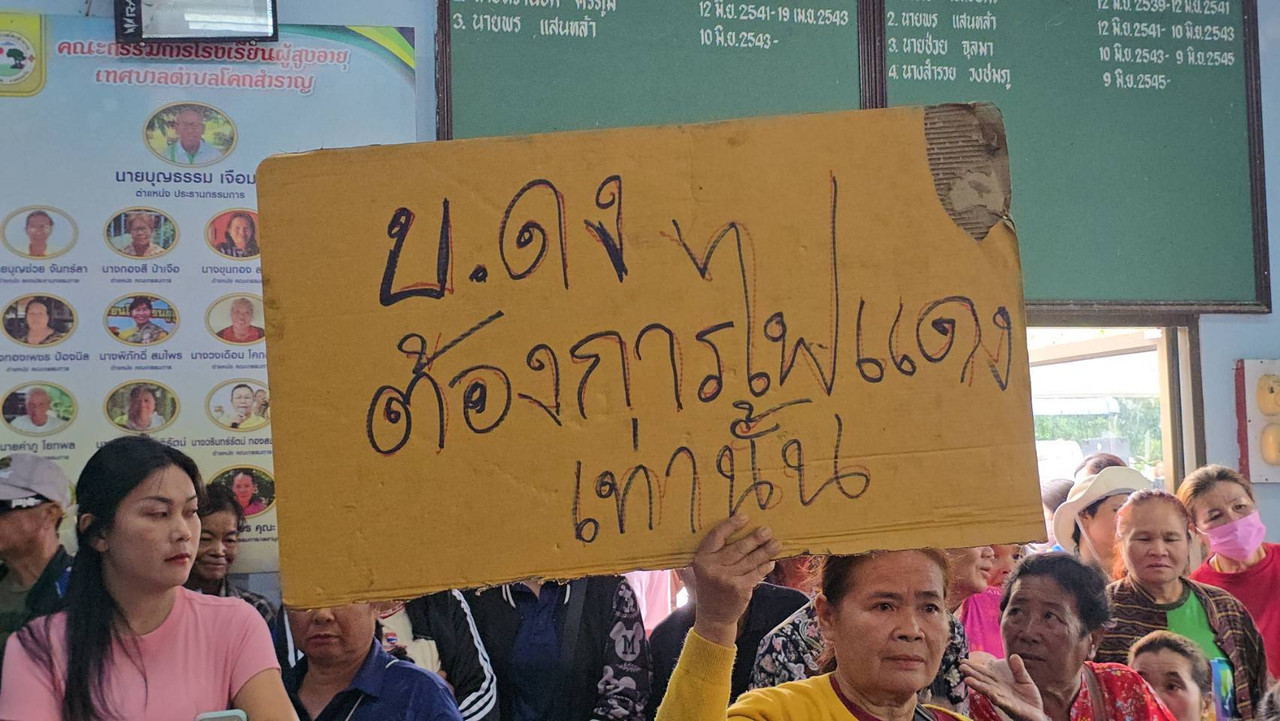 คณะกรรมการโรงเรียนผู้สูงอายุ
เทศบาลตำบลโคกสำราญ
นายบุญธรรม เจือม
ตำแหน่ง ประธานกรรมการ
บุญช่วย จันทร์ลา
นางทองสี ป่าเจือ
นางขุนทอง
นางพิภักดิ์ สมไพร
นางวงเดือน โคก
นายคำภู โยทพล
นางวรินทร์รัตน์ ทองส
3. นายพร แสนหล้า
12 มิ.ย.2541-19 เม.ย.2543
10 มิ.ย.2543-
12 มิ.ย.2539-12 มิ.ย.2541
2. นายพร แสนหล้า 12 มิ.ย.2541- 10 มิ.ย.2543
3. นายช่วย จุลมา 10 มิ.ย.2543- 9 มิ.ย.2545
4. นางสำรวย วงชมภู 9 มิ.ย.2545-
บ.ดง
ต้องการไฟแดง
เท่านั้น